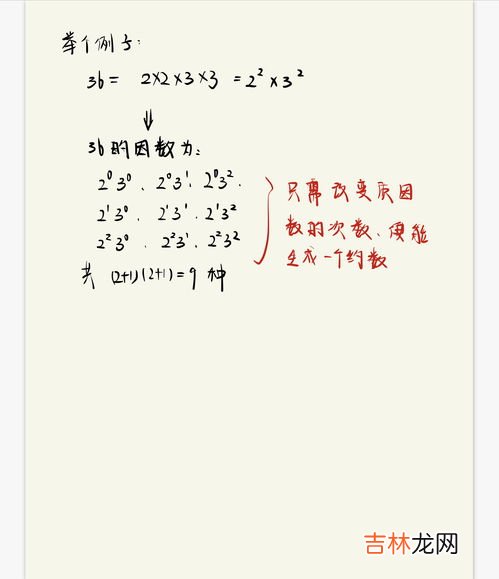 举个例子:
36 = 2×2×3×3 = 2²×3²
⇓
36的因数为:
2⁰3⁰、2⁰3¹、2⁰3².
2¹3⁰、2¹3¹、2¹3²
2²3⁰、2²3¹、2²3²
共 (2+1)(2+1)=9 种
只需改变质因
数的次数、便能
生成一个约数
吉林龙网